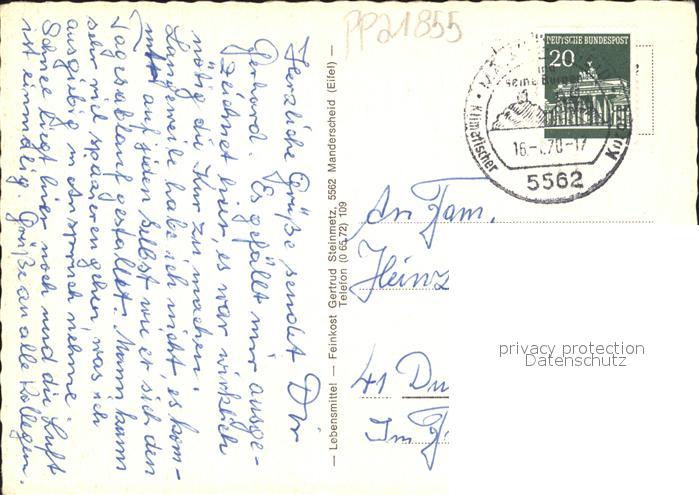 PP21855
DEUTSCHE BUNDESPOST
20
seine Burgen
Klimatischer
16.-.70-17
5562
Herzliche Grüße sendet Dir
Gerhard. Es gefällt mir ausge-
zeichnet hier, es war wirklich
nötig die Kur zu machen.
Langeweile habe ich nicht, es kom-
mt auf jeden selbst wie er sich den
Tagesablauf gestaltet. Mann kann
sehr viel spazieren gehen, was ich
ausgiebig in Anspruch nehme.
Schnee liegt hier noch und die Luft
ist einmalig. Grüße an alle Kollegen.
— Lebensmittel — Feinkost Gertrud Steinmetz, 5562 Manderscheid (Eifel) —
Telefon (0 65 72) 109
An Fam.
Heinz
41 Du
Im
privacy protection
Datenschutz